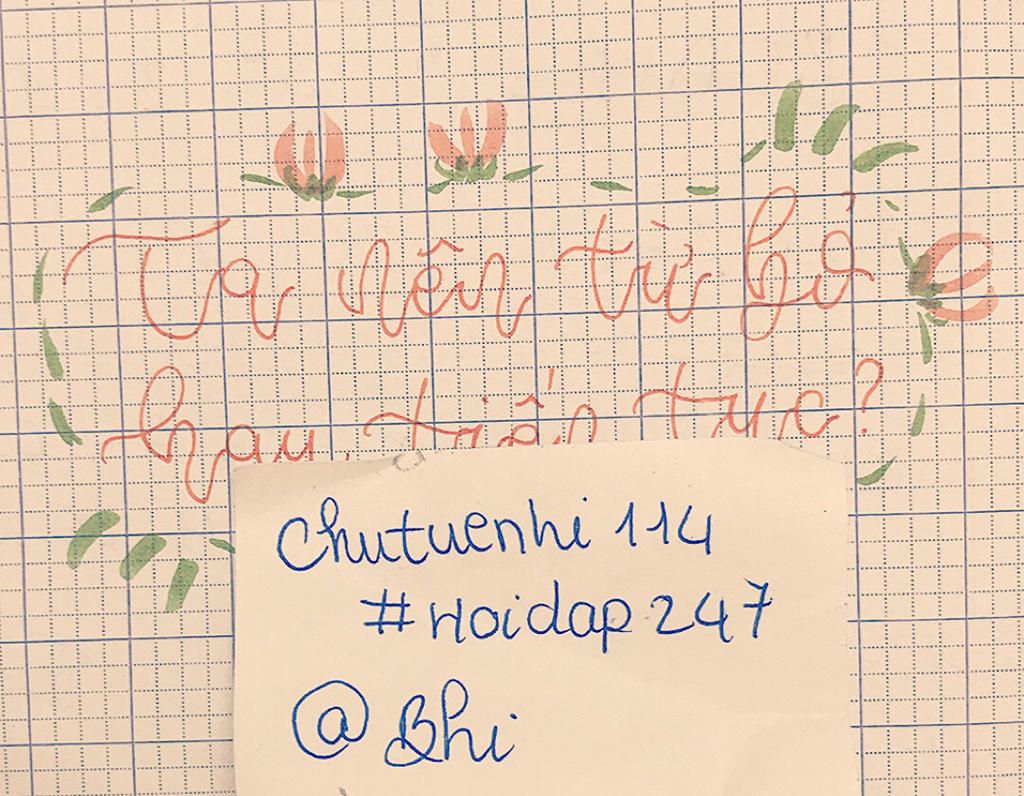 Ta nên từ bỏ
hay tiến tục?
Chutuenhi 114
#Hoidap247
@Bhi